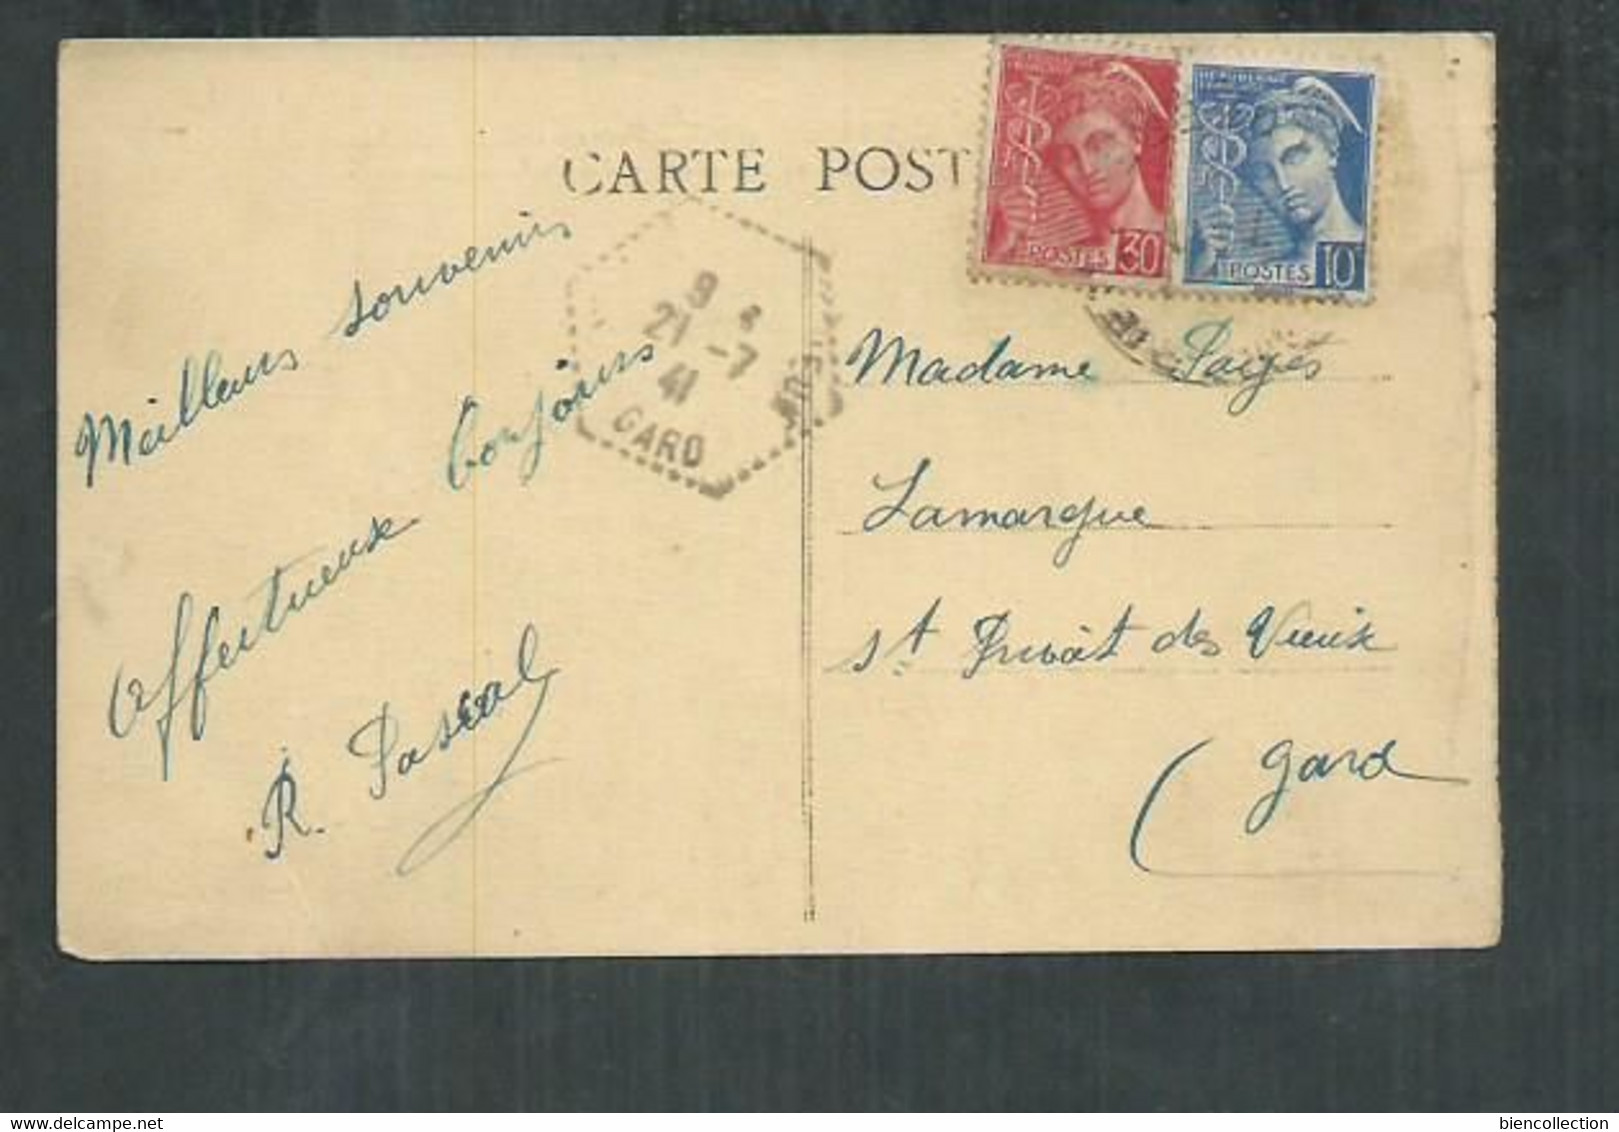 CARTE POST
POSTES 30
POSTES 10
9
21 -7
41
GARD
Meilleurs souvenirs
affectueux bonjours
R. Pascal
Madame Pagès
Lamargue
St Privat des Vieux
(Gard
biencollection